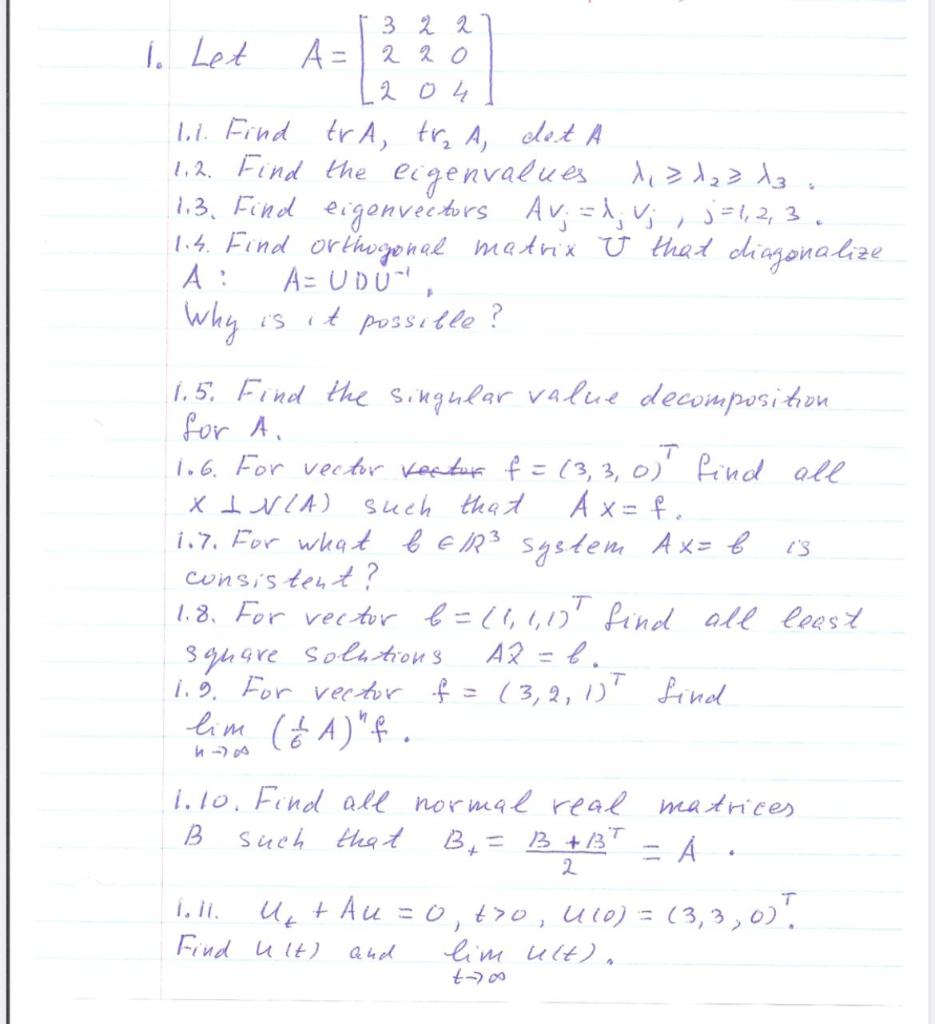 1. Let A = [ 3 2 2
2 2 0
2 0 4 ]
1.1. Find tr A, tr₂ A, det A
1.2. Find the eigenvalues λ₁ ≥ λ₂ ≥ λ₃.
1.3. Find eigenvectors A vⱼ = λⱼ vⱼ, j=1,2,3.
1.4. Find orthogonal matrix U that diagonalize
A: A = U D U⁻¹.
Why is it possible?
1.5. Find the singular value decomposition
for A.
1.6. For vector vector f = (3, 3, 0)ᵀ find all
x ⊥ N(A) such that A x = f.
1.7. For what b ∈ ℝ³ system A x = b is
consistent?
1.8. For vector b = (1, 1, 1)ᵀ find all least
square solutions A x̂ = b.
1.9. For vector f = (3, 2, 1)ᵀ find
lim n→∞ (1/6 A)ⁿ f.
1.10. Find all normal real matrices
B such that B₊ = (B + Bᵀ)/2 = A.
1.11. u_t + Au = 0, t>0, u(0) = (3, 3, 0)ᵀ.
Find u(t) and lim t→∞ u(t).